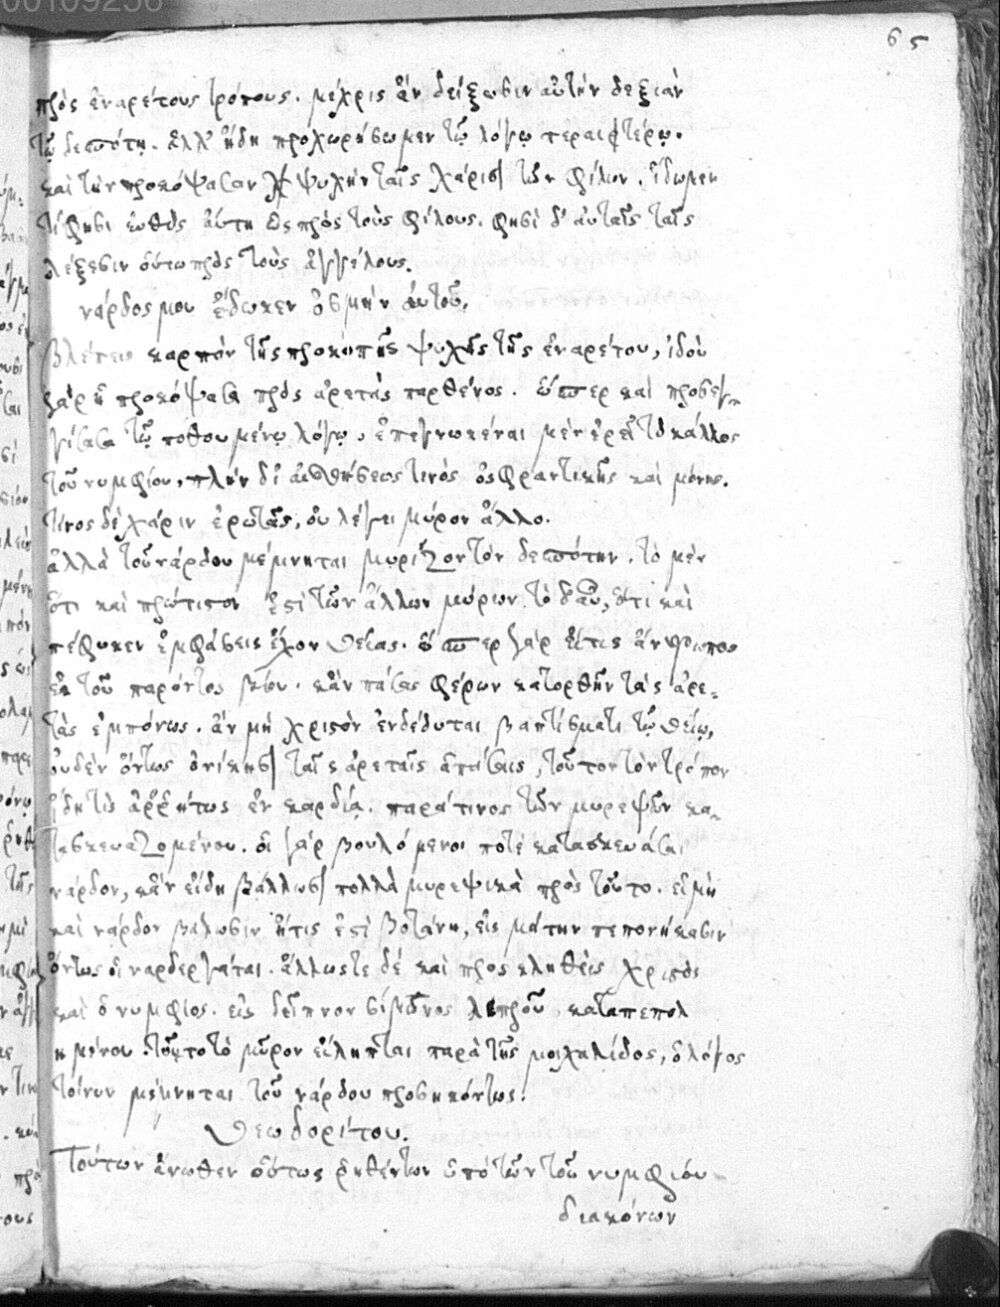 00109256
65
πρὸς ἐναρέτους τρόπους. μέχρις ἂν δείξωσιν αὐτὴν δεξιὰν
τῷ δεσπότῃ. ἀλλ' ἤδη προχωρήσωμεν τῷ λόγῳ περαιτέρω.
καὶ τὴν προκόψασαν ψυχὴν ταῖς χάρισι τῶν φίλων. ἴδωμεν
τί φησι αὕτη ὡς πρὸς τοὺς φίλους. φησὶ δ' αὐταῖς ταῖς
λέξεσιν οὕτω πρὸς τοὺς ἀγγέλους.
νάρδος μου ἔδωκεν ὀσμὴν αὐτοῦ.
βλέπεις καρπὸν τῆς προκοπῆς ψυχῆς τῆς ἐναρέτου, ἰδοὺ
γὰρ ἡ προκόψασα πρὸς ἀρετὰς παρθένος. ὥσπερ καὶ προσεγ-
γίσασα τῷ ποθουμένῳ λόγῳ, ἐπεγνωκέναι μὲν ἐρεῖ τὸ κάλλος
τοῦ νυμφίου, πλὴν δι' αἰσθήσεως τινὸς ὀσφραντικῆς καὶ μόνης.
τίνος δὲ χάριν ἐρωτᾷς, οὐ λέγει μύρον ἄλλο.
ἀλλὰ τοῦ νάρδου μέμνηται μυρίζον τὸν δεσπότην. τὸ μὲν
ὅτι καὶ πρώτιστον ἐστὶ τῶν ἄλλων μύρων τὸ δ' αὖ, ὅτι καὶ
πέφυκεν ἐμφάσεις ἔχον θείας. ὥσπερ γὰρ εἴ τις ἄνθρωπος
ἐκ τοῦ παρόντος βίου. κἂν πάσας φέρων κατορθῆν τὰς ἀρε-
τὰς ἐμπόνως. ἂν μὴ χριστὸν ἐνδέδυται βαπτίσματι τῷ θείῳ,
οὐδὲν ὄντως ὀνίνησι ταῖς ἀρεταῖς ἁπάσαις, τοῦτον τὸν τρόπον
ἀρρήτως ἐν καρδίᾳ. παρά τινος τῶν μυρεψῶν κα-
τασκευαζομένου. οἱ γὰρ βουλόμενοι ποτὲ κατασκευάσαι
νάρδον, κἂν εἴδη βάλλωσι πολλὰ μυρεψικὰ πρὸς τοῦτο. εἰ μὴ
καὶ νάρδον βάλωσιν ἥτις ἐστὶ βοτάνη, εἰς μάτην πεπονήκασιν
ὄντως οἱ ναρδεργάται. ἄλλωστε δὲ καὶ προσκληθεὶς χριστὸς
καὶ ὁ νυμφίος. εἰς δεῖπνον σίμωνος λεπροῦ,
τοῦτο τὸ μῦρον εἴληπται παρὰ τῆς μοιχαλίδος, ὁ λόγος
τοίνυν μέμνηται τοῦ νάρδου προσηκόντως:
θεωδορίτου.
Τούτων ἄνωθεν οὕτως ῥηθέντων ὑπὸ τῶν τοῦ νυμφίου
διακόνων